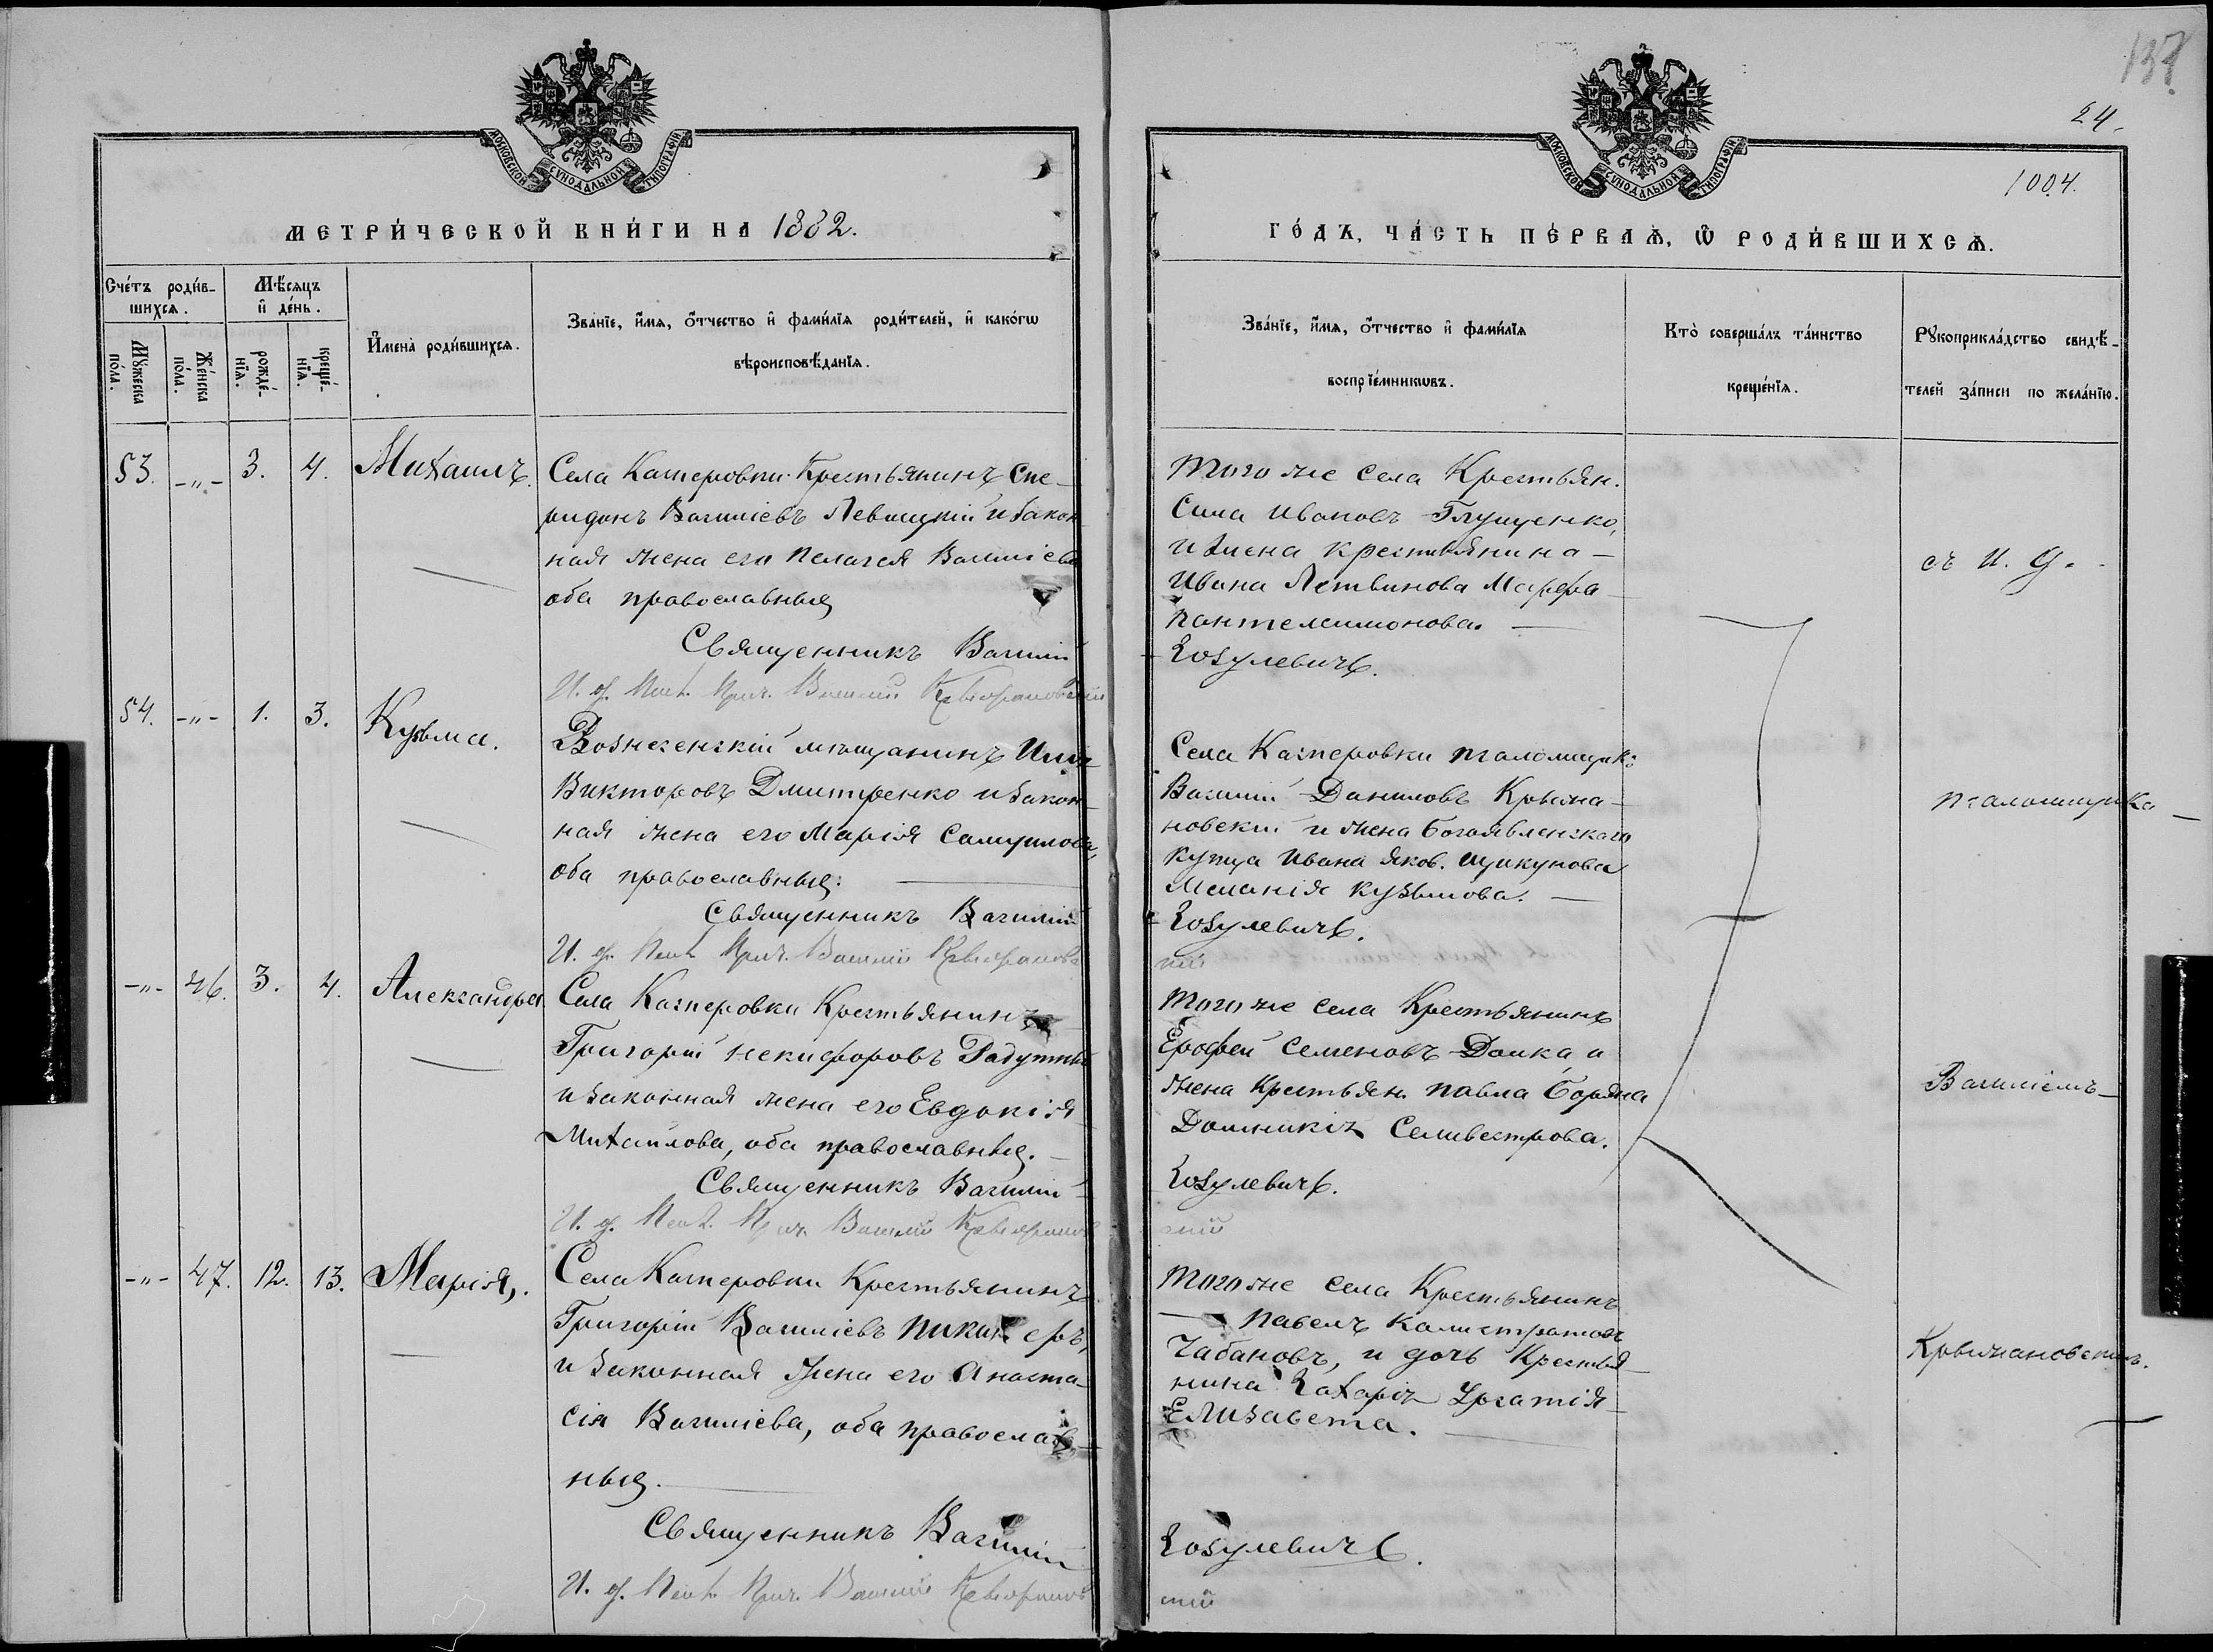 137
24.
1004.
МОСКОВСКОЙ СУНОДАЛЬНОЙ ТИПОГРАФІИ
МОСКОВСКОЙ СУНОДАЛЬНОЙ ТИПОГРАФІИ
МЕТРИ́ЧЕСКОЙ КНИ́ГИ НА 1882.
ГО́ДЪ, ЧА́СТЬ ПЕ́РВАѦ, Ѿ РОДИ́ВШИХСѦ.
Сче́тъ роди́в-
шихсѧ.
Мѣ́сяцъ
и҆ де́нь.
Мꙋ́жеска
по́ла.
Же́нска
по́ла.
рожде́-
нїѧ.
креще́-
нїѧ.
И҆мена̀ роди́вшихсѧ.
Зва́нїе, и҆́мѧ, ѻ҆́тчество и҆ фами́лїѧ роди́телей, и҆ како́гѡ
вѣроисповѣ́данїѧ.
Зва́нїе, и҆́мѧ, ѻ҆́тчество и҆ фами́лїѧ
воспрїе́мникѡвъ.
Кто̀ соверша́лъ та́инство
креще́нїѧ.
Рꙋкоприкла́дство свидѣ́-
телей за́писи по жела́нїю.
53. -"- 3. 4. Михаилъ.
Села Касперовки Крестьянинъ Спе-
ридонъ Василіевъ Левицкій и закон
ная жена его Пелагея Василіева
оба православныя
Священникъ Василій
Того же села Крестьян.
Сила Ивановъ Глущенко,
и жена крестьянина -
Ивана Летвинова Марфа
Пантелеимонова. -
Козулевичъ.
съ И. д.
54. -"- 1. 3. Кузьма.
Вознесенскій мѣщанинъ Илія
Викторовъ Дмитренко и закон-
ная жена его Марія Самуилова,
оба православныя:
Священникъ Василій
Села Касперовки псаломщик:
Василій Даниловъ Крыжа-
новскій и жена Богоявленскаго
купца Ивана Яков. Щикунова
Меланія Кузьмова. -
Козулевичъ.
псаломщика -
-"- 46. 3. 4. Александра
Села Касперовки Крестьянинъ
Григорій Некифоровъ Радутный
и законная жена его Евдокія
Михайлова, оба православныя. -
Священникъ Василій
Того же села Крестьянинъ
Ерофей Семеновъ Доика, и
жена Крестьян. Павла Боряна
Домникія Селивестрова.
Козулевичъ.
Василіемъ -
-"- 47. 12. 13. Марія,.
Села Касперовки Крестьянинъ
Григорій Василіевъ
и законная жена его Анаста-
сія Василіева, оба православ-
ныя.
Священникъ Василій
Того же села Крестьянинъ
Павелъ Калистратовъ
Чабановъ, и дочь Крестья-
нина Захарія
Елизавета.
Козулевичъ.
Крыжановскимъ.